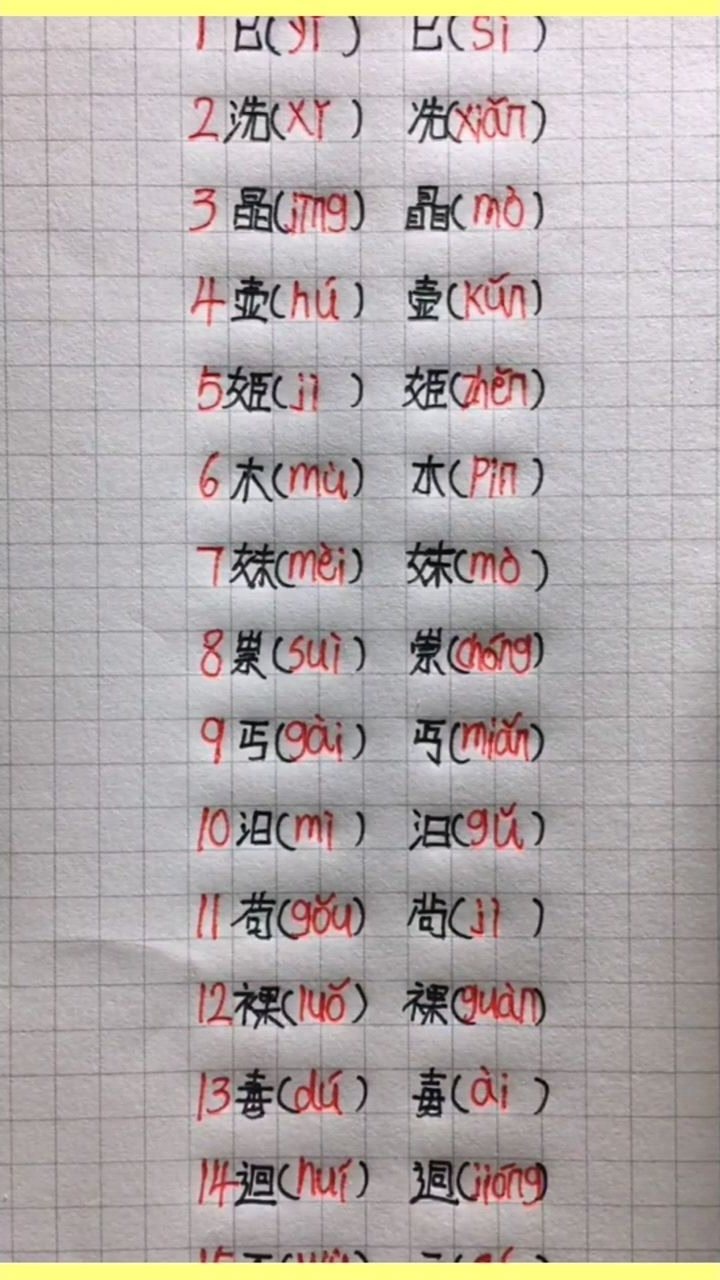 1 已(yǐ) 巳(sì)
2 洗(xǐ) 冼(xiǎn)
3 晶(jīng) 瞐(mò)
4 壶(hú) 壸(kǔn)
5 姬(jī) 姫(zhěn)
6 木(mù) 朩(pìn)
7 妹(mèi) 妺(mò)
8 祟(suì) 崇(chóng)
9 丐(gài) 丏(miǎn)
10 汨(mì) 汩(gǔ)
11 苟(gǒu) 茍(jì)
12 裸(luǒ) 祼(guàn)
13 毒(dú) 毐(ǎi)
14 迴(huí) 逈(jiǒng)